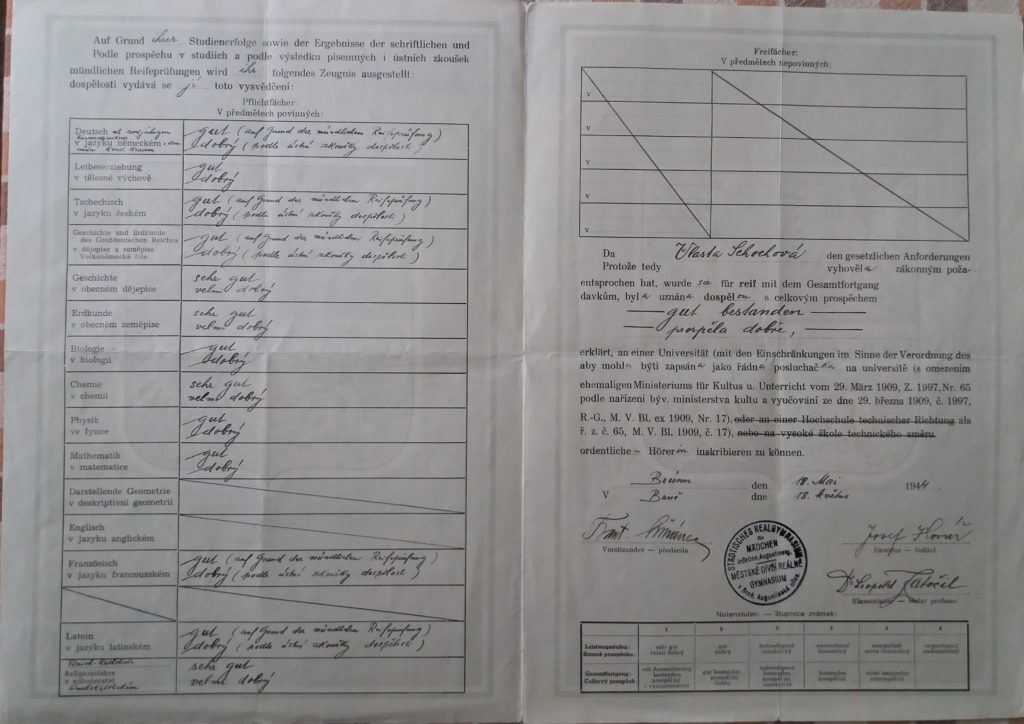 Auf Grund ihrer Studienerfolge sowie der Ergebnisse der schriftlichen und
Podle prospěchu v studiích a podle výsledku písemných i ústních zkoušek
mündlichen Reifeprüfungen wird ihr folgendes Zeugnis ausgestellt:
dospělosti vydává se jí toto vysvědčení:
Pflichtfächer:
V předmětech povinných:
Deutsch gut (auf Grund der mündlichen Reifeprüfung)
v jazyku německém dobrý (podle ústní zkoušky dospělosti)
Leibeserziehung gut
v tělesné výchově dobrý
Tschechisch gut (auf Grund der mündlichen Reifeprüfung)
v jazyku českém dobrý (podle ústní zkoušky dospělosti)
Geschichte und Erdkunde
des Großdeutschen Reiches gut (auf Grund der mündlichen Reifeprüfung)
v dějepise a zeměpise dobrý (podle ústní zkoušky dospělosti)
Velkoněmecké říše
Geschichte sehr gut
v obecném dějepise velmi dobrý
Erdkunde sehr gut
v obecném zeměpise velmi dobrý
Biologie gut
v biologii dobrý
Chemie sehr gut
v chemii velmi dobrý
Physik gut
ve fysice dobrý
Mathematik gut
v matematice dobrý
Darstellende Geometrie
v deskriptivní geometrii
Englisch
v jazyku anglickém
Französisch gut (auf Grund der mündlichen Reifeprüfung)
v jazyku francouzském dobrý (podle ústní zkoušky dospělosti)
Latein gut (auf Grund der mündlichen Reifeprüfung)
v jazyku latinském dobrý (podle ústní zkoušky dospělosti)
Religionslehre sehr gut
v náboženství velmi dobrý
Freifächer:
V předmětech nepovinných:
v
v
v
v
v
Da Vlasta Schochová den gesetzlichen Anforderungen
Protože tedy vyhověla zákonným poža-
entsprochen hat, wurde sie für reif mit dem Gesamtfortgang
davkům, byla uznána dospělou s celkovým prospěchem
gut bestanden
prospěla dobře,
erklärt, an einer Universität (mit den Einschränkungen im Sinne der Verordnung des
aby mohla býti zapsána jako řádná posluchačka na universitě (s omezením
ehemaligen Ministeriums für Kultus u. Unterricht vom 29. März 1909, Z. 1997, Nr. 65
podle nařízení býv. ministerstva kultu a vyučování ze dne 29. března 1909, č. 1997,
R.-G., M. V. Bl. ex 1909, Nr. 17), oder an einer Hochschule technischer Richtung als
ř. z. č. 65, M. V. Bl. 1909, č. 17), nebo na vysoké škole technického směru.
ordentliche Hörerin inskribieren zu können.
Brünn den 18. Mai 1944.
V Brně dne 18. května
Vorsitzender — předseda.
Josef
Direktor — ředitel.
Dr. Leopold Zatočil
STÄDTISCHES REALGYMNASIUM
für
MÄDCHEN
in Brünn, Augustinerg.
MĚSTSKÉ DÍVČÍ REÁLNÉ
GYMNASIUM
v Brně, Augustinská ulice
Notenstufen: — Stupnice známek:
1 2 3 4 5 6
Leistungsstufen: sehr gut gut
Stupně prospěchu: velmi dobrý dobrý
Gesamtfortgang:
Celkový prospěch